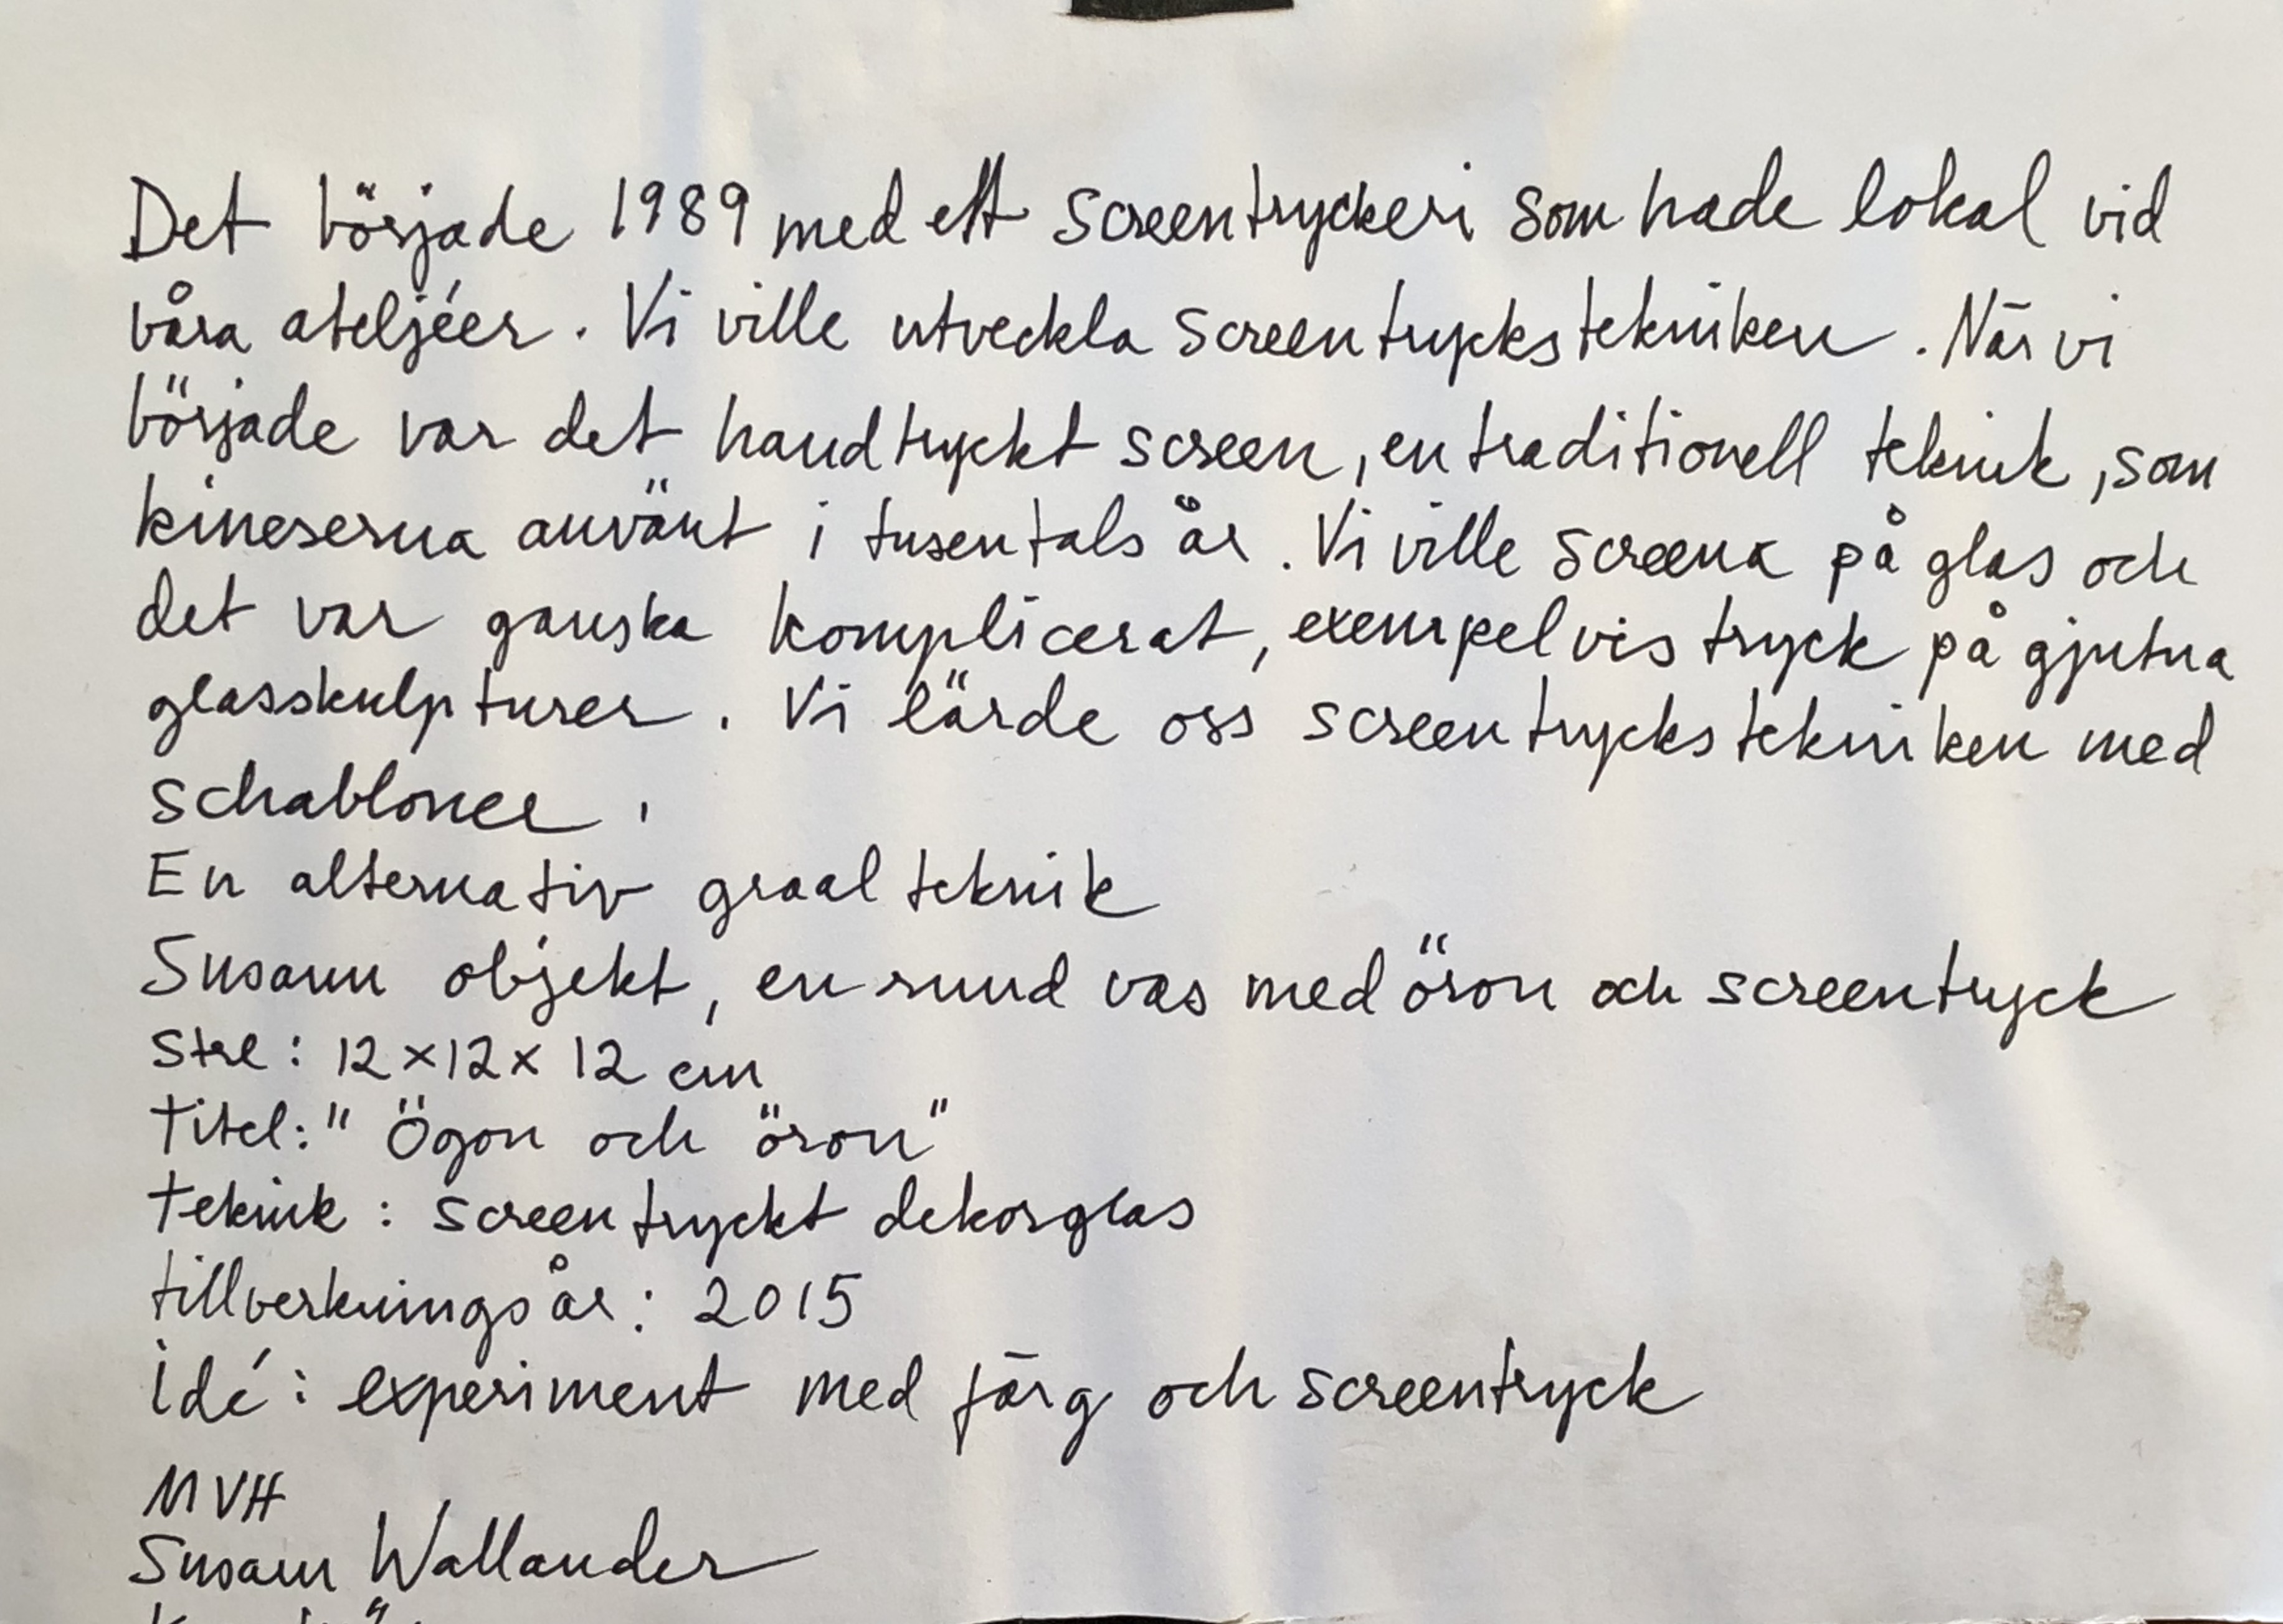 Det började 1989 med ett screentryckeri som hade lokal vid
våra ateljéer. Vi ville utveckla screentryckstekniken. När vi
började var det handtryckt screen, en traditionell teknik, som
kineserna använt i tusentals år. Vi ville screena på glas och
det var ganska komplicerat, exempelvis tryck på gjutna
glasskulpturer. Vi lärde oss screentryckstekniken med
schabloner.
En alternativ graalteknik
Susann objekt, en rund vas med öron och screentryck
Strl: 12x12x12 cm
Titel: "Ögon och öron"
Teknik: screentryckt dekorglas
tillverkningsår: 2015
idé: experiment med färg och screentryck
MVH
Susann Wallander